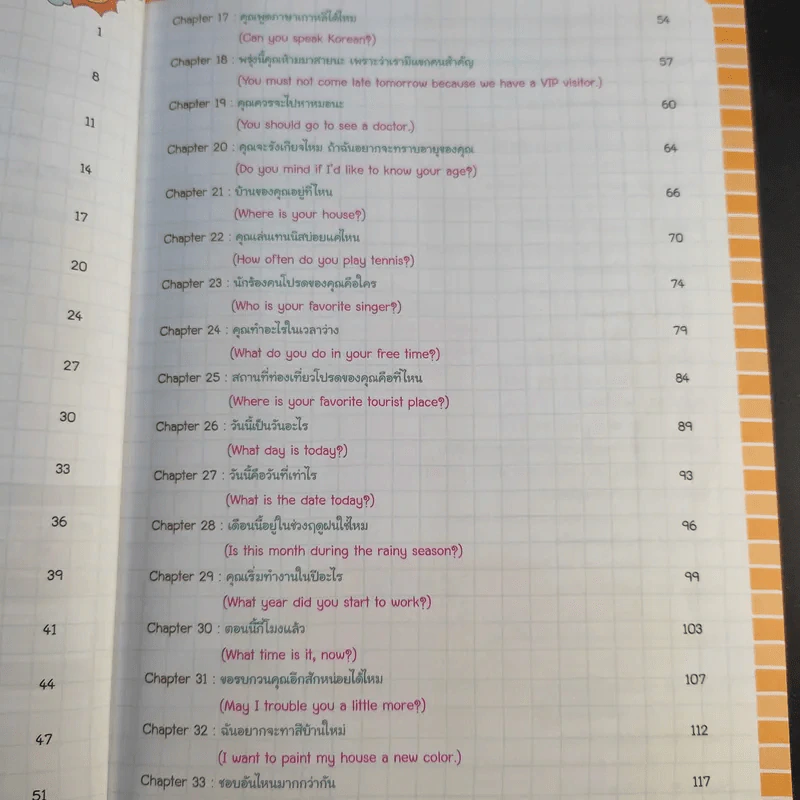 1
8
11
14
17
20
24
27
30
33
36
39
41
44
47
51
Chapter 17 : คุณพูดภาษาเกาหลีได้ไหม 54
(Can you speak Korean?)
Chapter 18 : พรุ่งนี้คุณห้ามมาสายนะ เพราะว่าเรามีแขกคนสำคัญ 57
(You must not come late tomorrow because we have a VIP visitor.)
Chapter 19 : คุณควรจะไปหาหมอนะ 60
(You should go to see a doctor.)
Chapter 20 : คุณจะรังเกียจไหม ถ้าฉันอยากจะทราบอายุของคุณ 64
(Do you mind if I'd like to know your age?)
Chapter 21 : บ้านของคุณอยู่ที่ไหน 66
(Where is your house?)
Chapter 22 : คุณเล่นเทนนิสบ่อยแค่ไหน 70
(How often do you play tennis?)
Chapter 23 : นักร้องคนโปรดของคุณคือใคร 74
(Who is your favorite singer?)
Chapter 24 : คุณทำอะไรในเวลาว่าง 79
(What do you do in your free time?)
Chapter 25 : สถานที่ท่องเที่ยวโปรดของคุณคือที่ไหน 84
(Where is your favorite tourist place?)
Chapter 26 : วันนี้เป็นวันอะไร 89
(What day is today?)
Chapter 27 : วันนี้คือวันที่เท่าไร 93
(What is the date today?)
Chapter 28 : เดือนนี้อยู่ในช่วงฤดูฝนใช่ไหม 96
(Is this month during the rainy season?)
Chapter 29 : คุณเริ่มทำงานในปีอะไร 99
(What year did you start to work?)
Chapter 30 : ตอนนี้กี่โมงแล้ว 103
(What time is it, now?)
Chapter 31 : ขอรบกวนคุณอีกสักหน่อยได้ไหม 107
(May I trouble you a little more?)
Chapter 32 : ฉันอยากจะทาสีบ้านใหม่ 112
(I want to paint my house a new color.)
Chapter 33 : ชอบอันไหนมากกว่ากัน 117